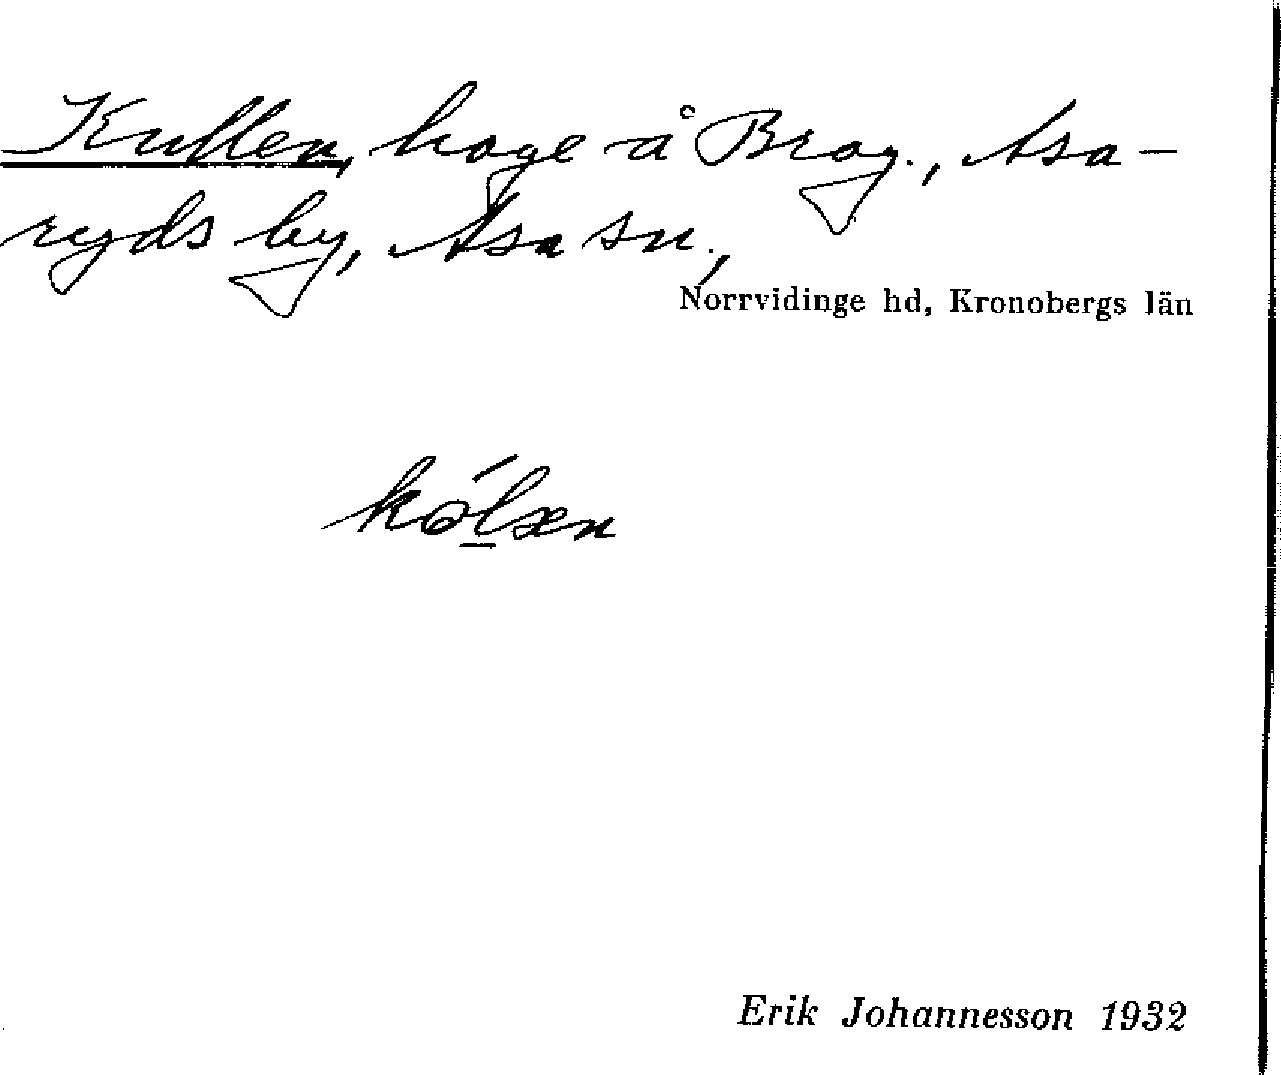 Kullen, hage å Brog., Asa-
ryds by, Asa sn.,
Norrvidinge hd, Kronobergs län
Erik Johannesson 1932